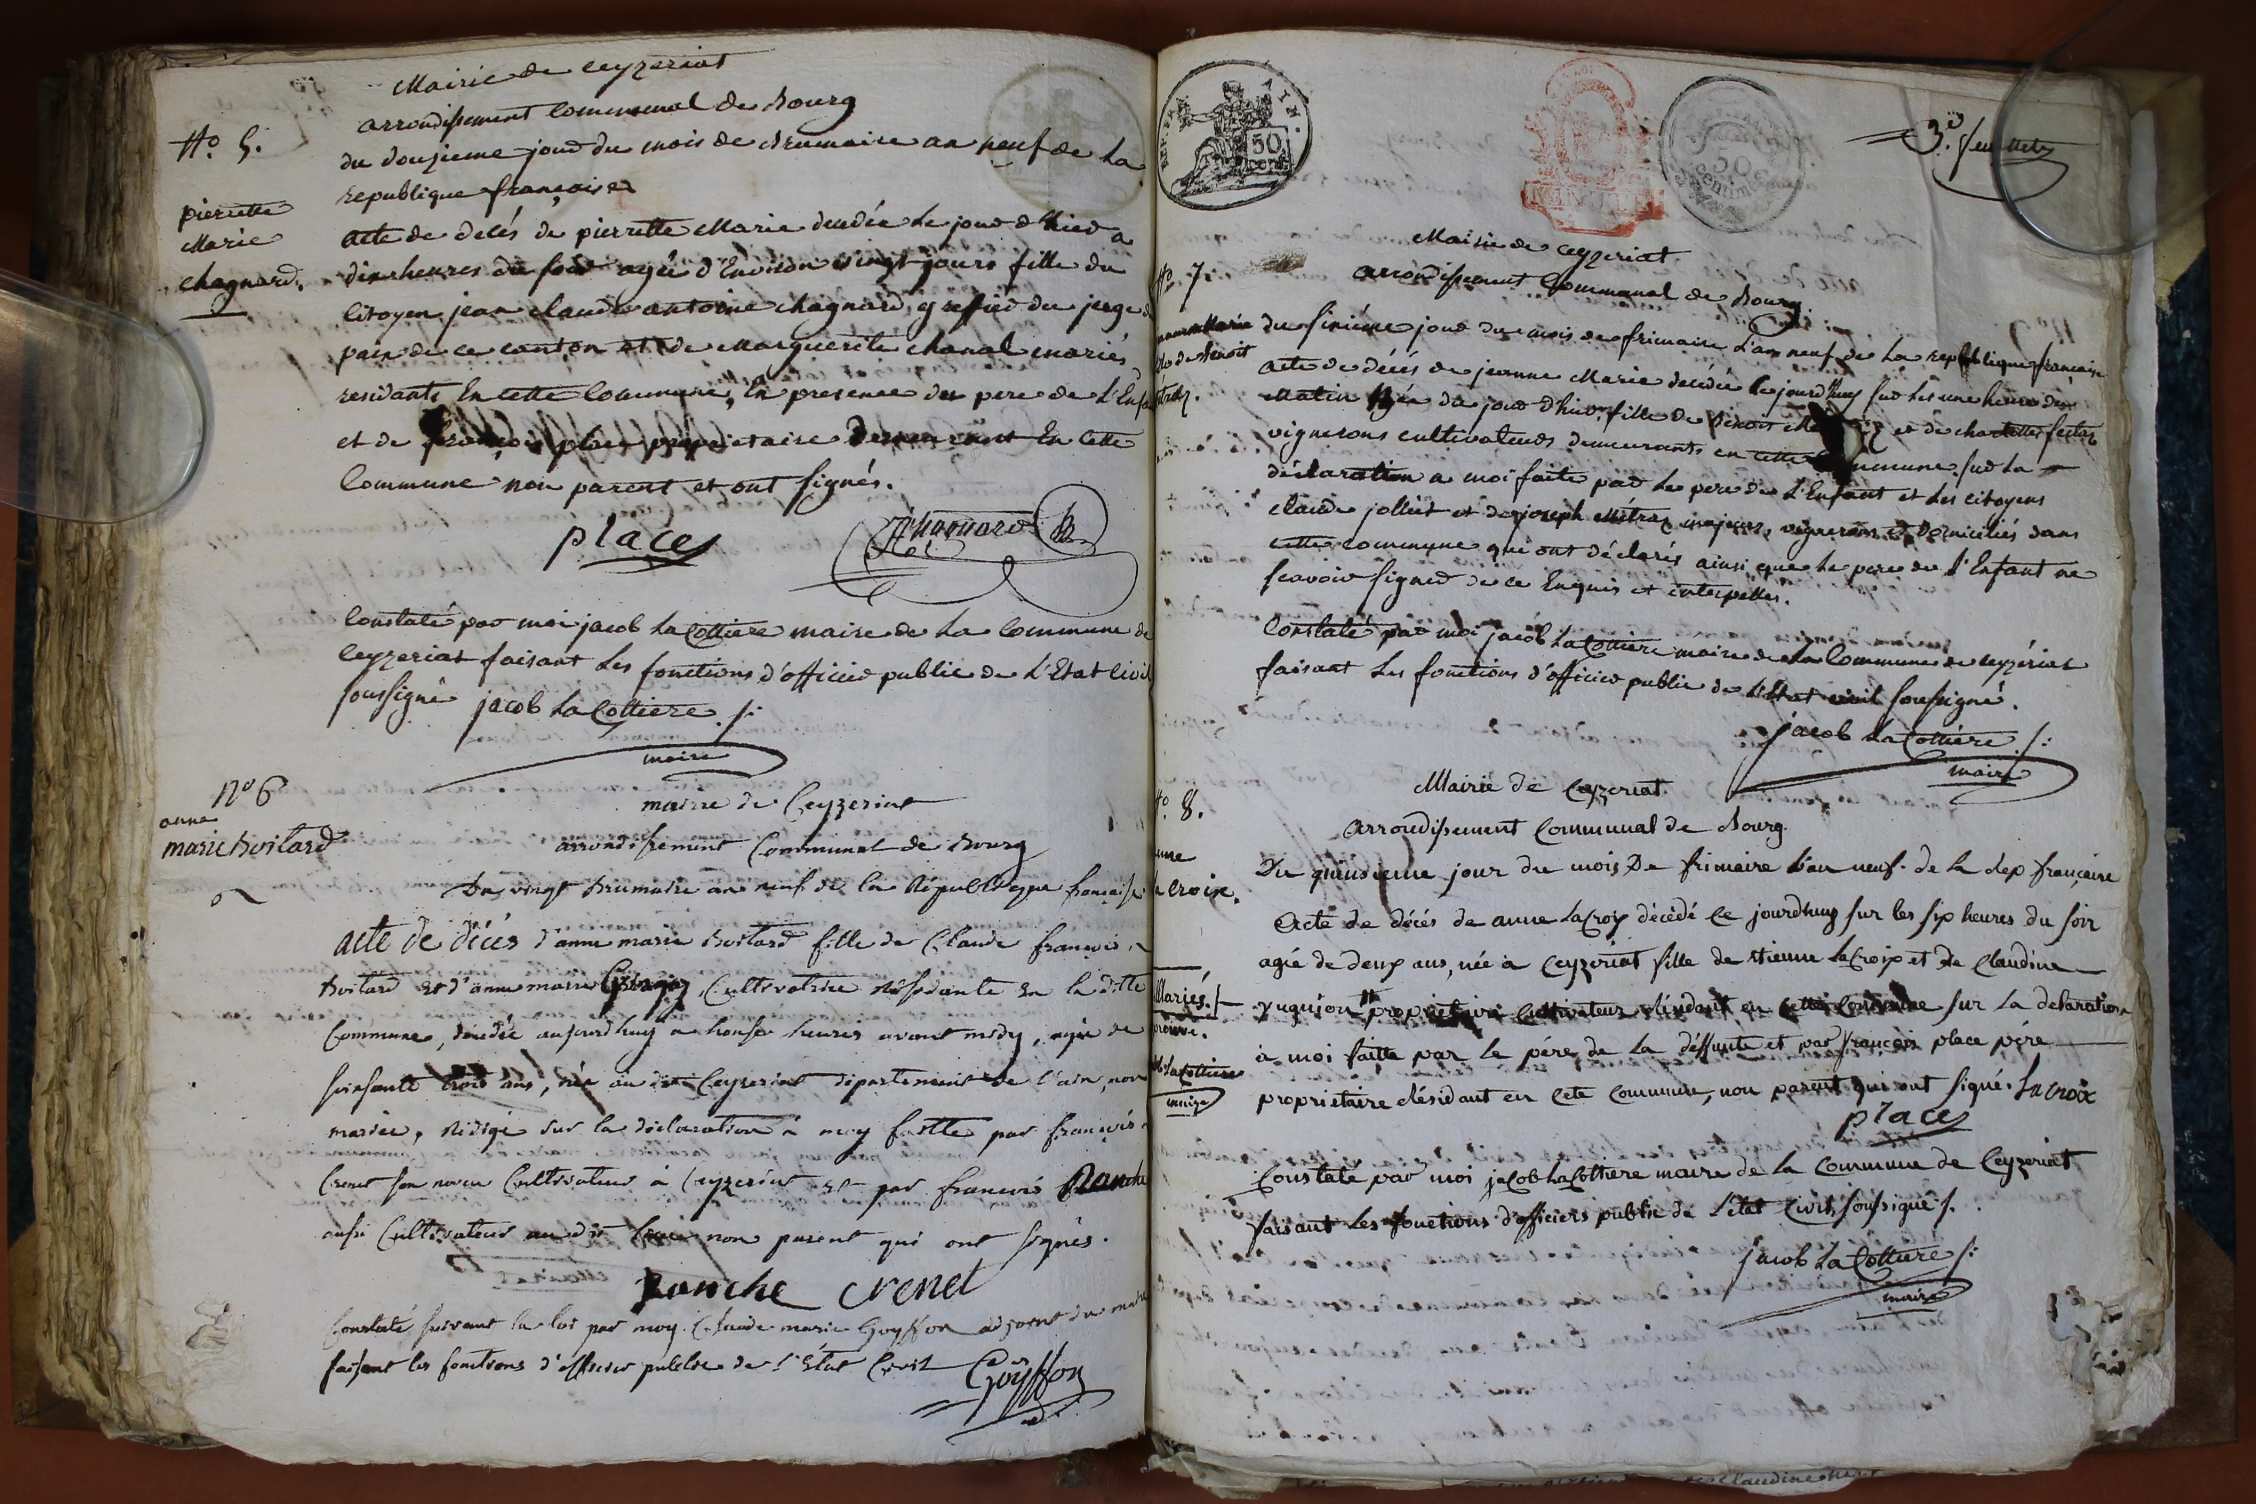 Mairie de Ceyzeriat
arrondissement Communal de Bourg
No. 5.
du douzieme jour du mois de brumaire an neuf de la
republique française
pierrette
Marie
chagnard.
acte de décés de pierrette Marie decedée le jour d'hier a
dix heures du soir agée d'Environ vingt jours fille du
Citoyen jean claude antoine chagnard, greffier du juge de
paix de ce canton et de Marguerite chanal mariés
residants En cette Commune, En presence du pere de L'Enfant
et de françois place proprietaire demeurant En cette
Commune non parent et ont signés.
place Chagnard
Constaté par moi jacob La Cottiere maire de La Commune de
Ceyzeriat faisant Les fonctions d'officier public de L'Etat Civil
soussigné jacob La Cottiere ./.
maire
No 6
anne
marie Boitard
mairie de Ceyzeriat
arrondissement Communal de Bourg
Du vingt Brumaire an neuf de la République française
acte de décés d'anne marie Boitard fille de Claude françois
Boitard et d'anne marie Cultivatrice résidante en la ditte
Commune, décedée aujourdhuy a honse heures avant midy, agée de
soixsante trois ans, née au dit Ceyzeriat département de l'ain, non
mariée, rédigé sur la déclaration à moy faitte par françois
Crenet son neveu Cultivateur à Ceyzeriat et par françois Ranche
aussi Cultivateur au dit lieu non parent qui ont signés.
Ranche crenet
Constaté suivant la loi par moy Claude marie Goyffon adjoint du maire
faisant les fonctions d'officier publice de l'État Civil Goyffon
3e. feuillet
REP. FRA. AIN.
50 cent.
50 centimes
Mairie de Ceyzeriat.
arrondissement Communal de Bourg
No 7.
Marie
de Benoit
du sixiéme jour du mois de frimaire L'an neuf de La republique française
acte de décés de jeanne Marie decédée Ce jourd'huy sur Les une heure du
Matin Née du jour d'hier, fille de Benoit et de
vignerons cultivateurs demeurants en cette Commune sur la
déclaration a moi faite par Le pere de L'Enfant et Les citoyens
claude jolliet et de joseph majeurs, vignerons et Domiciliés dans
cette commune qui ont déclarés ainsi que Le pere de L'Enfant ne
scavoir signer de ce Enquis et interpellés.
Constaté par moi jacob La Cottiere maire de La Commune de Ceyzériat
faisant Les fonctions d'officier public de L'Etat civil soussigné.
jacob La Cottiere ./.
maire
Mairie de Ceyzeriat.
No. 8.
arrondissement Communal de Bourg.
anne
la croix.
Du quinsieme jour du mois De frimaire L'an neuf de la Rep française
Acte de décés de anne LaCroix décédé Ce jourdhuy sur les six heures du soir
agée de deux ans, née à Ceyzeriat fille de Etienne LaCroix et de Claudine
Mariés./.
yuguion # proprietaire Cultivateur résidant en Cette Commune sur la declaration
à moi faitte par le père de la déffunte et par françois place père
La Cottiere
maire
proprietaire résidant en Cete Commune, non parent qui ont signé. Lacroix
place
Constaté par moi jacob LaCottiere maire de la Commune de Ceyzeriat
faisant Les fonctions d'officiers public de L'état Civil soussigné ./.
jacob La Cottiere ./.
maire